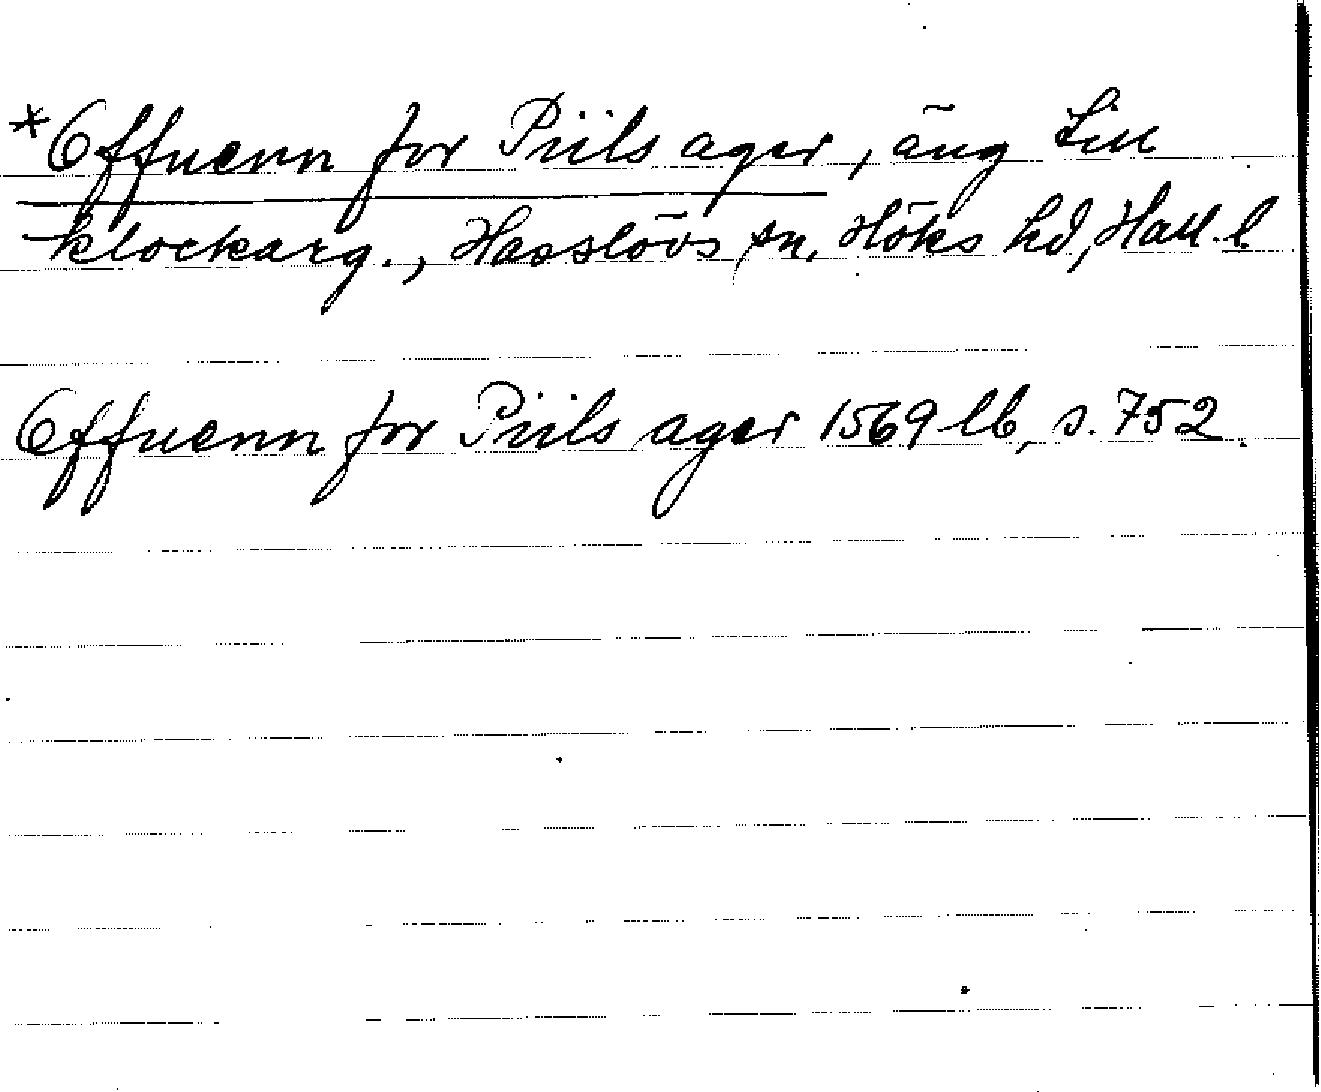 *Offuenn for Piils ager, äng till
klockarg., Hasslövs sn, Höks hd, Hall. l.
Offuenn for Piils ager 1569 lb, s. 752.